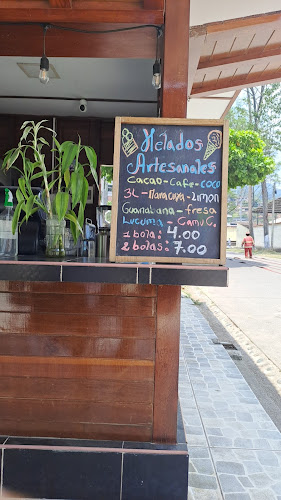 Helados
Artesanales
Cacao-Cafe-coco
3L-Maracuya-Limon
Guanabana-fresa
Lucuma-Camu C.
1 bola: 4.00
2 bolas: 7.00